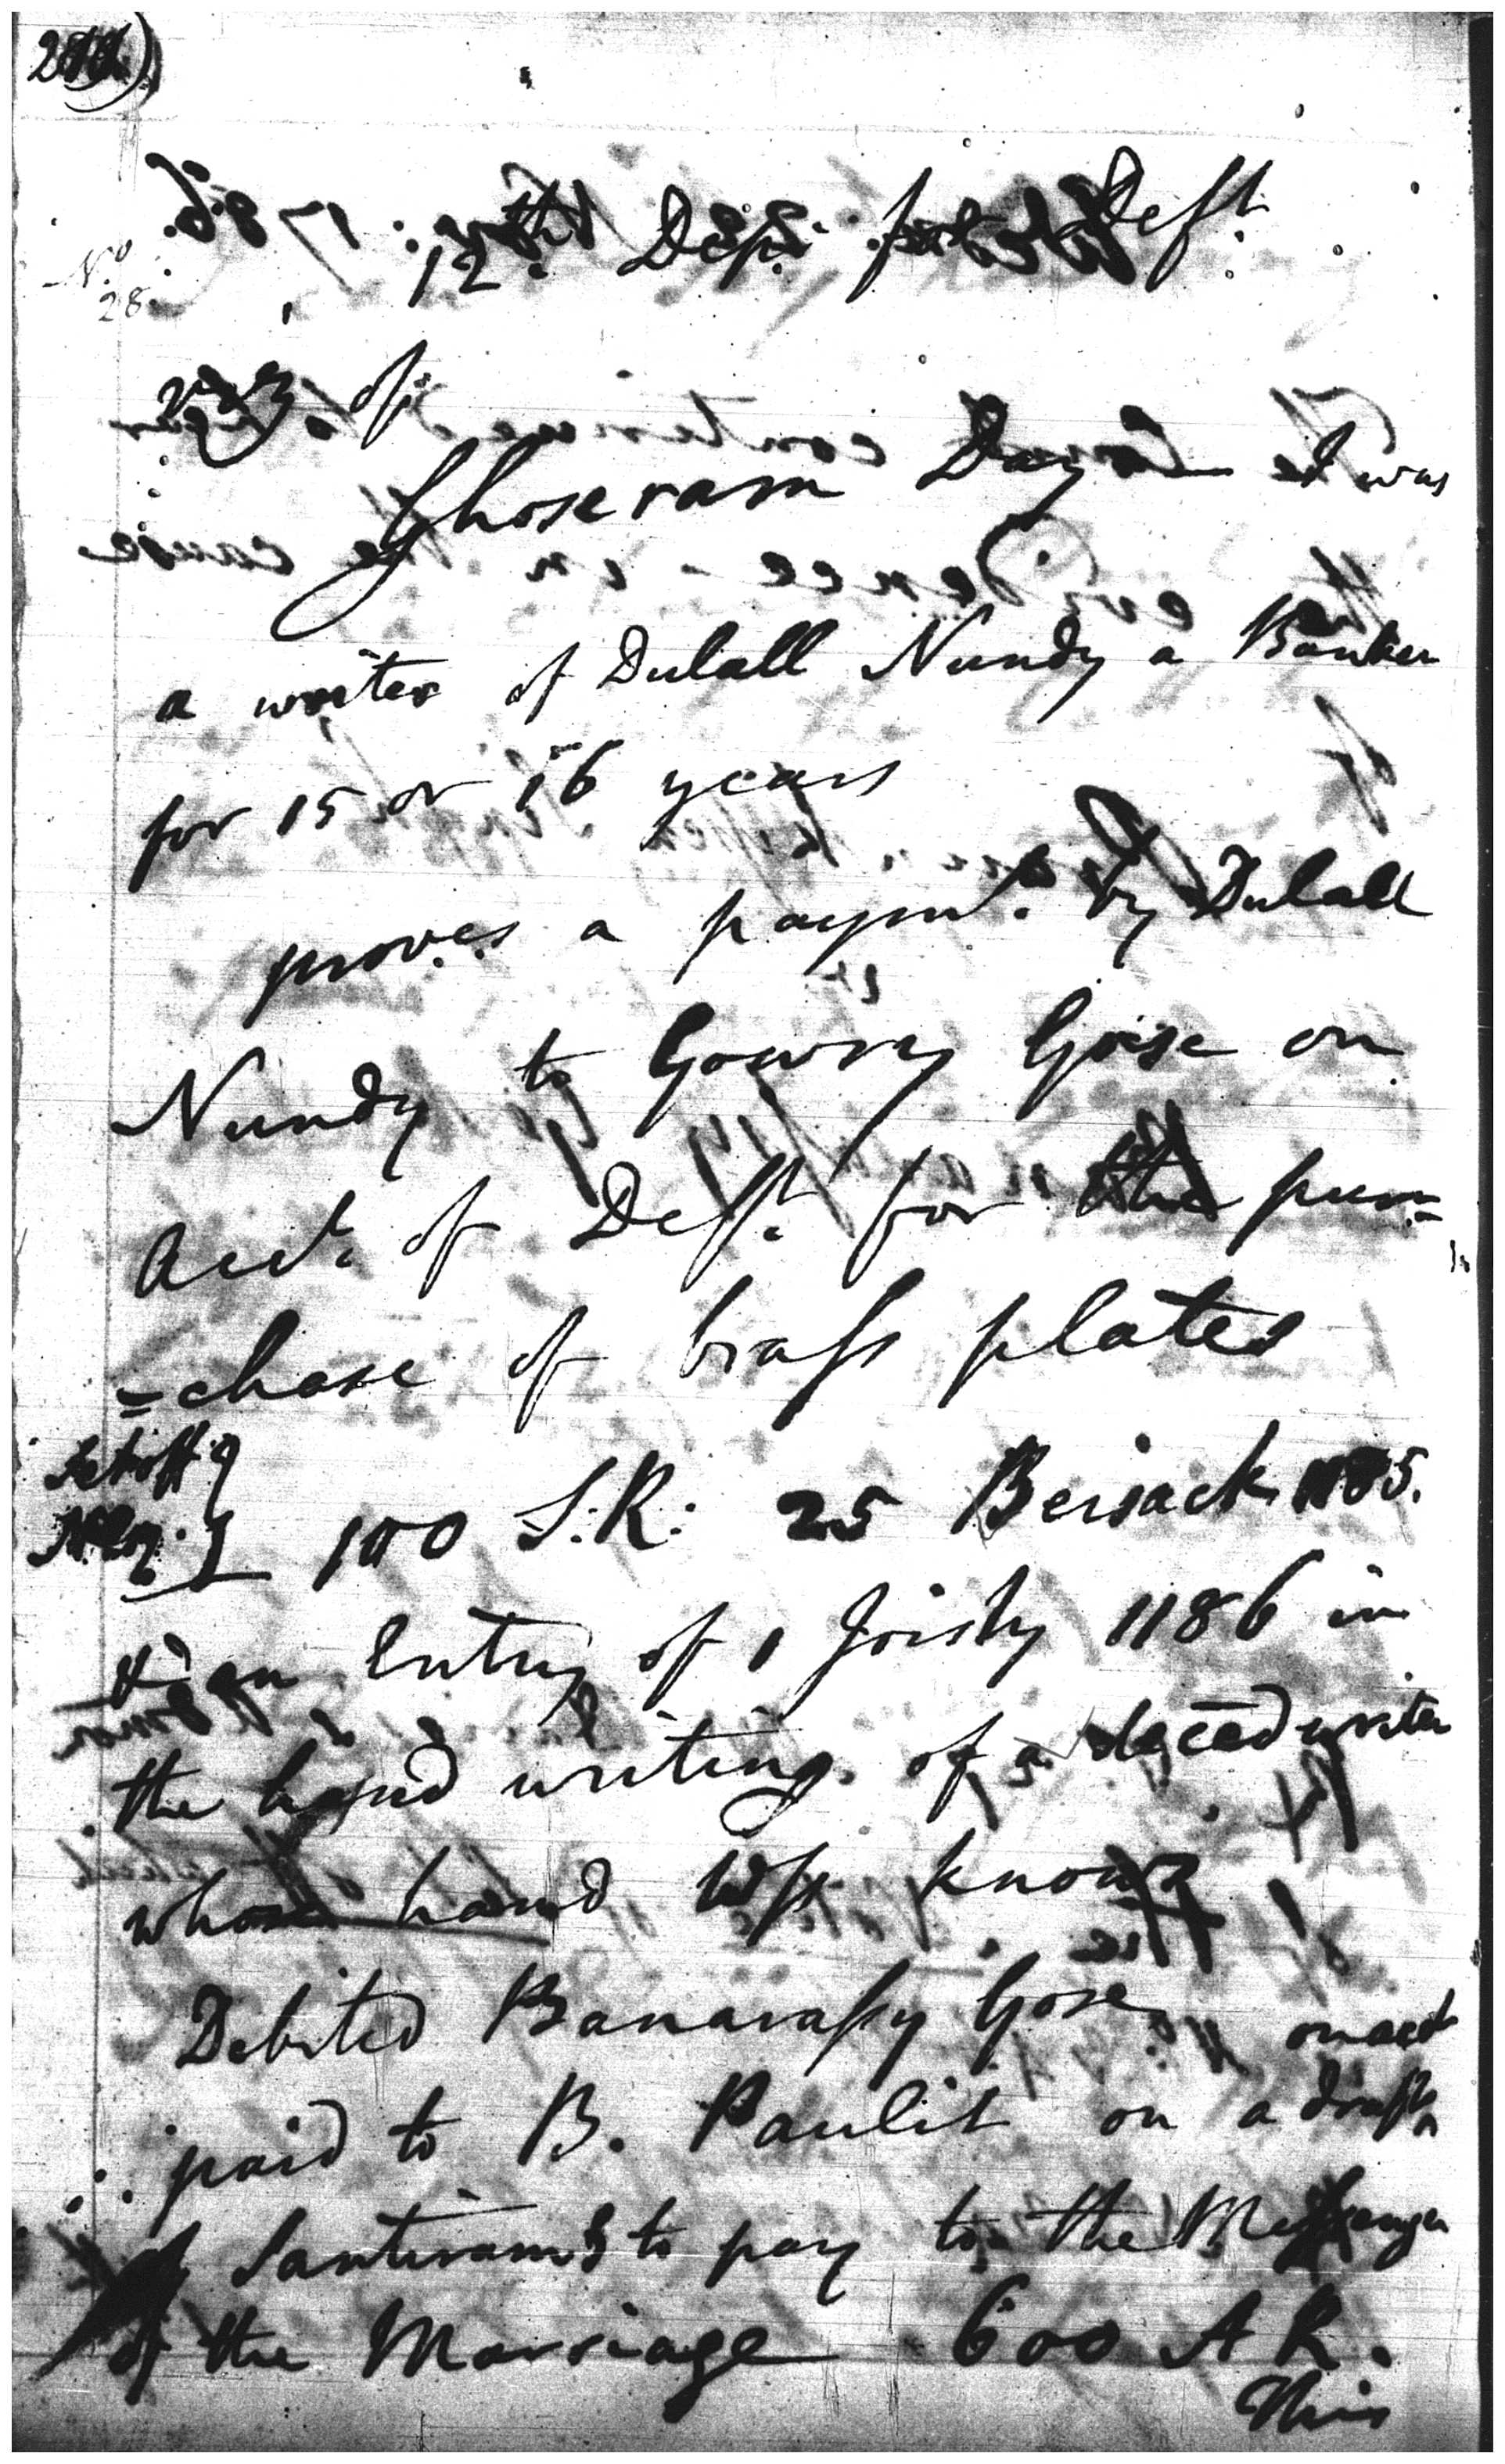 No
28.
12th. Depn. for Deft.
of
Ghoseram Day I was
a writer of Dulall Nundy a Banker
for 15 or 16 years
proves a paymt. by Dulall
Nundy to Gowry Gose on
Acct. of Deft. for the pur=
=chase of brass plates
100 S.R: 25 Beisack 1185.
an Entry of 1 Joisty 1186 in
the hand writing of a deceed writer
whose hand Wss knows
Debited Banarassy Gose on acct
paid to B. Paulit on a draft
of Santiram to pay to the Messenger
of the Marriage 600 A R.
This